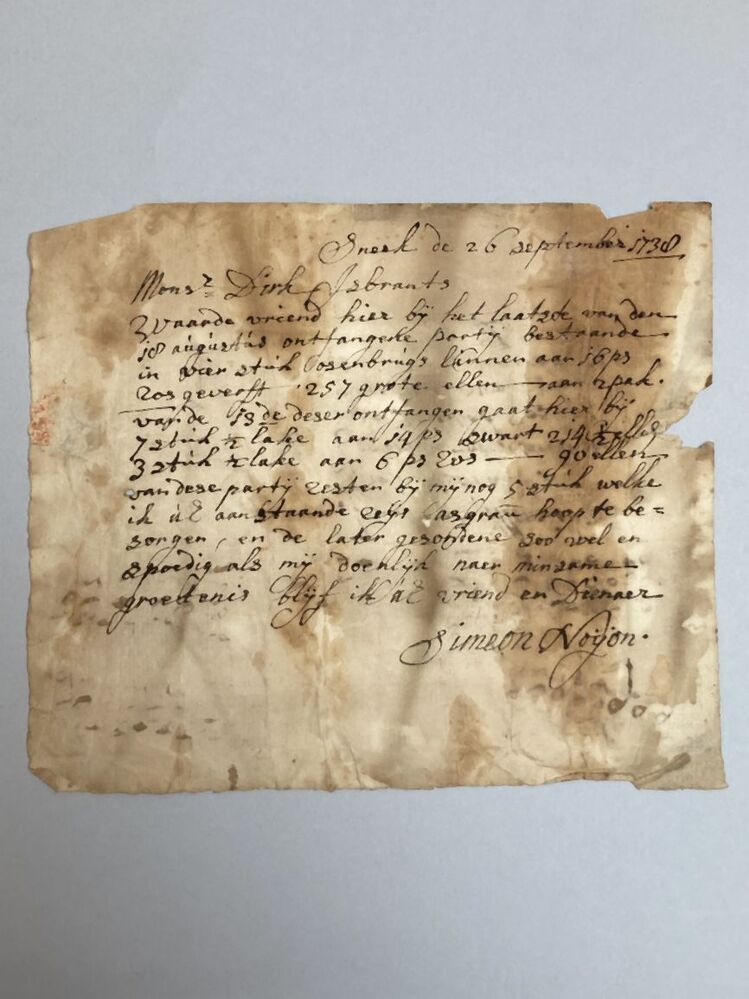 Sneek de 26 september 1738
Monsr Dirk Isbrants
Waarde vriend hier bij het laatste van den
18 augustus ontfangene partij bestaande
in vier stuk Oosenbrugs linnen aan 16 ps
ros geverft 257 grote ellen — aan 2 pak.
van de 13de deser ontfangen gaat hier bij
7 stuk ½ lake aan 14 ps swart 214½ ellen
3 stuk ½ lake aan 6 ps ros — 90 ellen
van dese partij resten bij mij nog 5 stuk welke
ik uE aanstaande reijs asgrau hoop te be=
sorgen, en de later gesondene soo wel en
spoedig als mij doenlijk naer minsame
groetenis blijf ik uE vriend en Dienaer
Simeon Noijon.